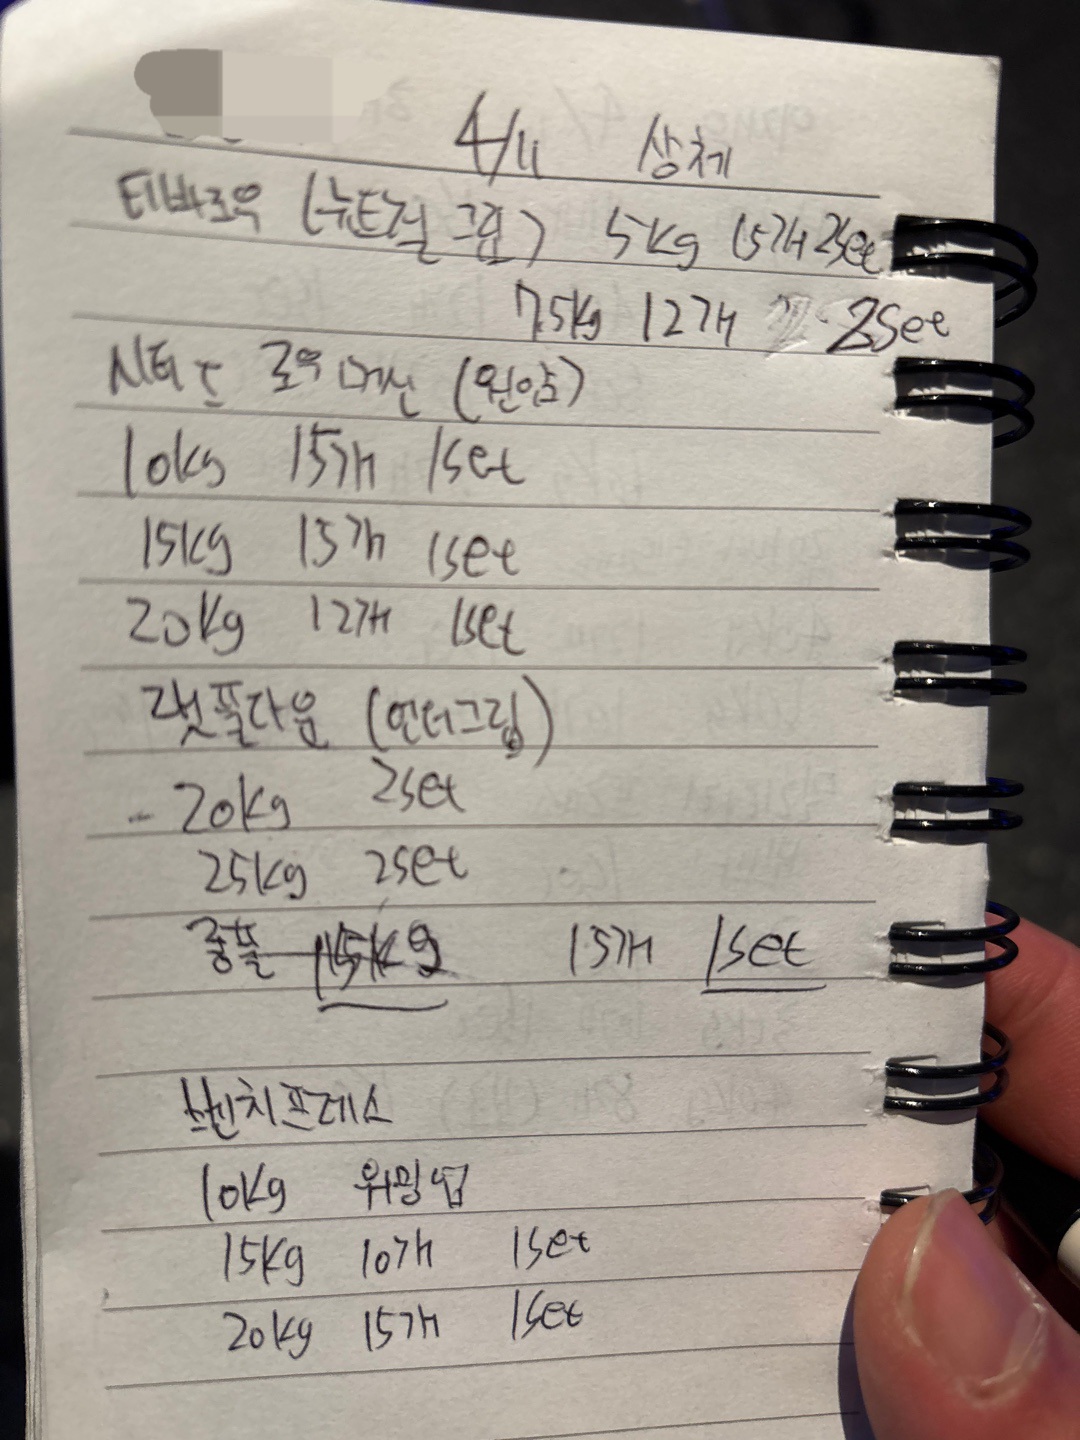 4/11 상체
티바로우 (뉴트럴 그립) 5kg 15개 2set
7.5kg 12개 2set
시티드 로우 머신 (원암)
10kg 15개 1set
15kg 15개 1set
20kg 12개 1set
랫풀다운 (언더그립)
- 20kg 2set
25kg 2set
롱풀 15kg 15개 1set
벤치프레스
10kg 워밍업
15kg 10개 1set
20kg 15개 1set